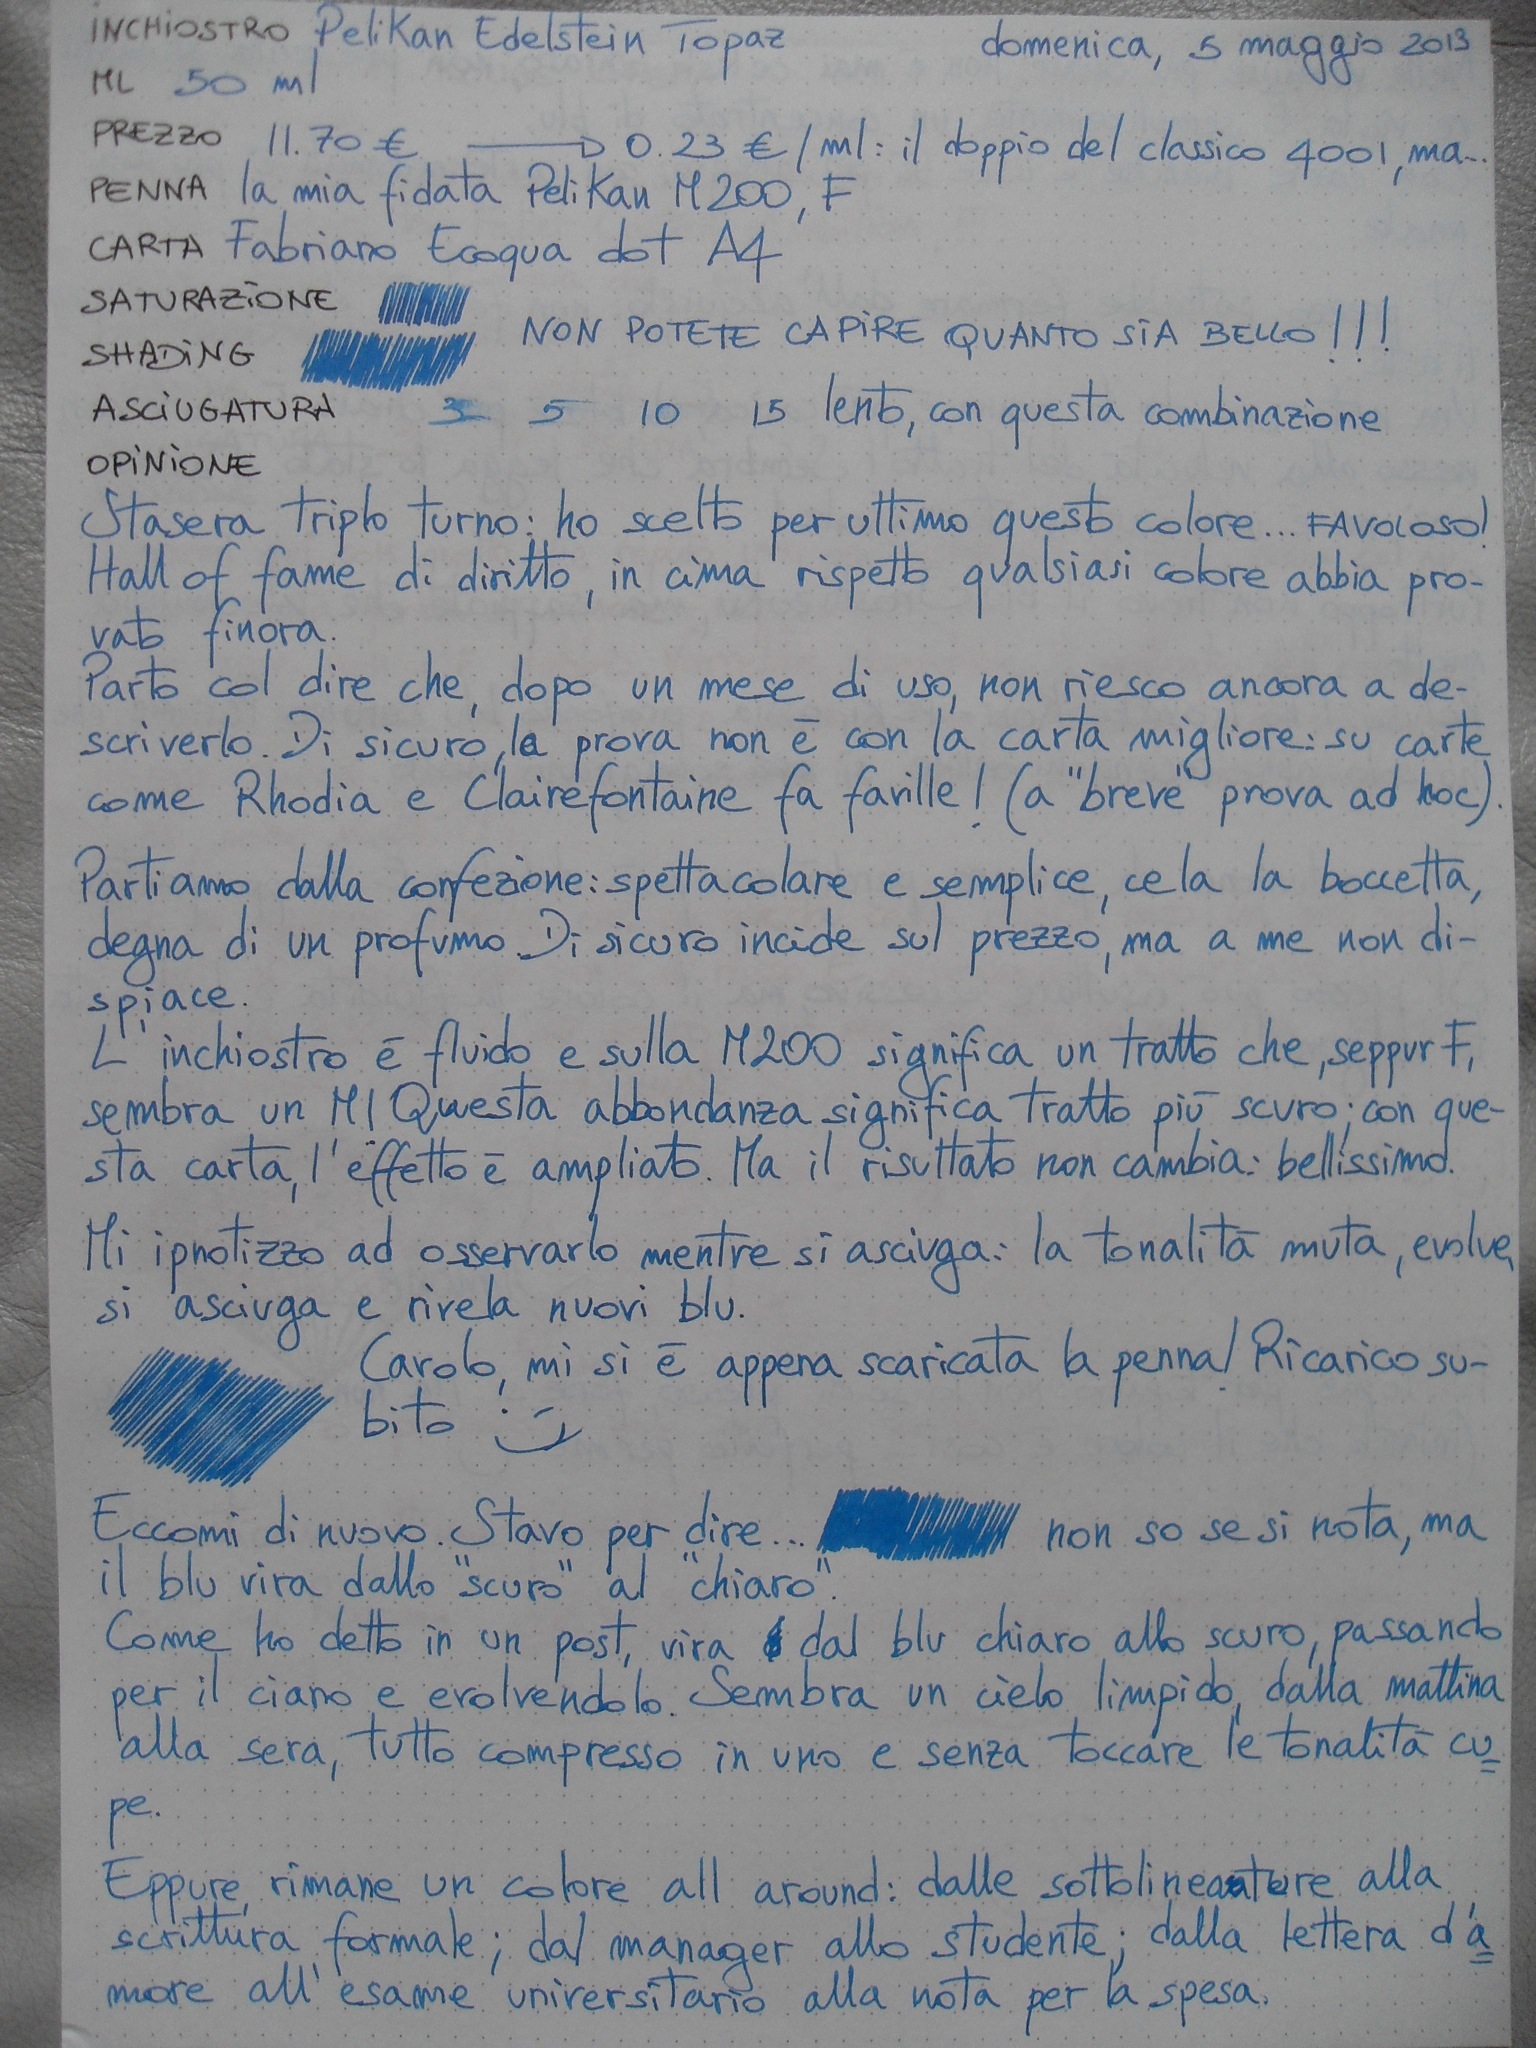 INCHIOSTRO Pelikan Edelstein Topaz domenica, 5 maggio 2013
ML 50 ml
PREZZO 11.70 € → 0.23 €/ml: il doppio del classico 4001, ma...
PENNA la mia fidata Pelikan M200, F
CARTA Fabriano Ecoqua dot A4
SATURAZIONE
SHADING NON POTETE CAPIRE QUANTO SIA BELLO!!!
ASCIUGATURA 3 5 10 15 lento, con questa combinazione
OPINIONE
Stasera triplo turno: ho scelto per ultimo questo colore... FAVOLOSO!
Hall of fame di diritto, in cima rispetto qualsiasi colore abbia pro-
vato finora.
Parto col dire che, dopo un mese di uso, non riesco ancora a de-
scriverlo. Di sicuro, la prova non è con la carta migliore: su carte
come Rhodia e Clairefontaine fa faville! (a "breve" prova ad hoc).
Partiamo dalla confezione: spettacolare e semplice, cela la boccetta,
degna di un profumo. Di sicuro incide sul prezzo, ma a me non di-
spiace.
L'inchiostro è fluido e sulla M200 significa un tratto che, seppur F,
sembra un M! Questa abbondanza significa tratto più scuro; con que-
sta carta, l'effetto è ampliato. Ma il risultato non cambia: bellissimo.
Mi ipnotizzo ad osservarlo mentre si asciuga: la tonalità muta, evolve,
si asciuga e rivela nuovi blu.
Carolo, mi si è appena scaricata la penna! Ricarico su-
bito :-)
Eccomi di nuovo. Stavo per dire... non so se si nota, ma
il blu vira dallo "scuro" al "chiaro".
Come ho detto in un post, vira dal blu chiaro allo scuro, passando
per il ciano e evolvendolo. Sembra un cielo limpido, dalla mattina
alla sera, tutto compresso in uno e senza toccare le tonalità cu=
pe.
Eppure, rimane un colore all around: dalle sottolineature alla
scrittura formale; dal manager allo studente; dalla lettera d'a=
more all'esame universitario alla nota per la spesa.